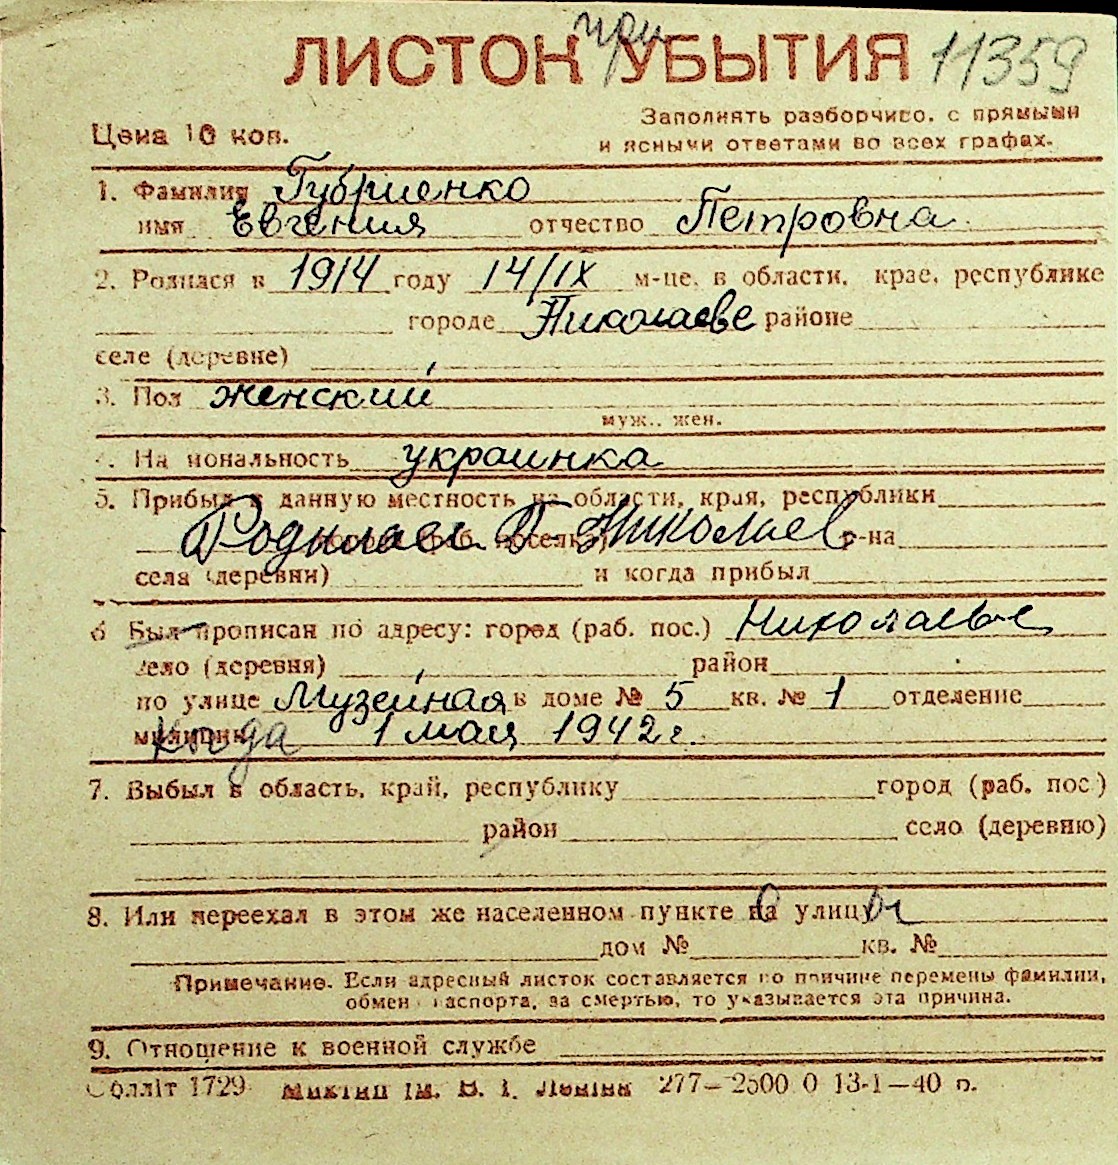 при
ЛИСТОК УБЫТИЯ 11359
Цена 10 коп.
Заполнять разборчиво, с прямыми
и ясными ответами во всех графах.
1. Фамилия Губриенко
имя Евгения отчество Петровна
2. Родился в 1914 году 14/IX м-це, в области, крае, республике
городе Николаеве районе
селе (деревне)
3. Пол женский
муж., жен.
4. Национальность украинка
5. Прибыл в данную местность из области, края, республики
Родилась Г. Николаев р-на
села (деревни) и когда прибыл
6 Был прописан по адресу: город (раб. пос.) Николаеве
село (деревня) район
по улице Музейная в доме № 5 кв. № 1 отделение
милиции Когда 1 мая 1942 г.
7. Выбыл в область, край, республику город (раб. пос.)
район село (деревню)
8. Или переехал в этом же населенном пункте на улицу
дом № кв. №
Примечание. Если адресный листок составляется по причине перемены фамилии,
обмен паспорта, за смертью, то указывается эта причина.
9. Отношение к военной службе
Облліт 1729 Миктип ім. В. І. Леніна 277—2500 0 13-1—40 п.